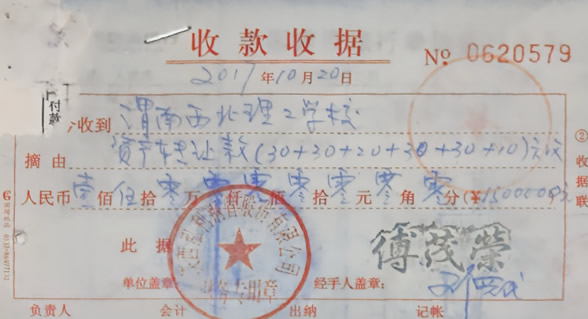 收款收据 № 0620579
2017年10月20日
付款
今收到 渭南西北理工学校
摘由 资产转让款(30+30+20+30+30+10)
人民币 壹佰伍拾零万零仟零佰零拾零元零角零分(¥1500000
②收据联
此据
财务专用章
傅茂荣
单位盖章: 经手人盖章:
负责人 会计 出纳 记帐